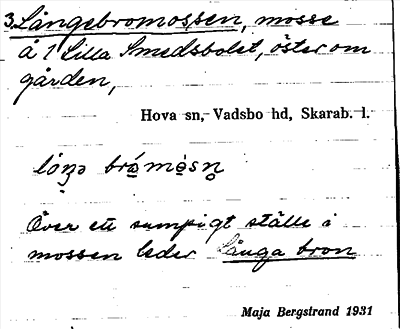 3. Långebromossen, mosse
å 1 Lilla Smedsbolet, öster om
gården,
Hova sn, Vadsbo hd, Skarab. l.
Över ett sumpigt ställe i
mossen leder Långa bron
Maja Bergstrand 1931